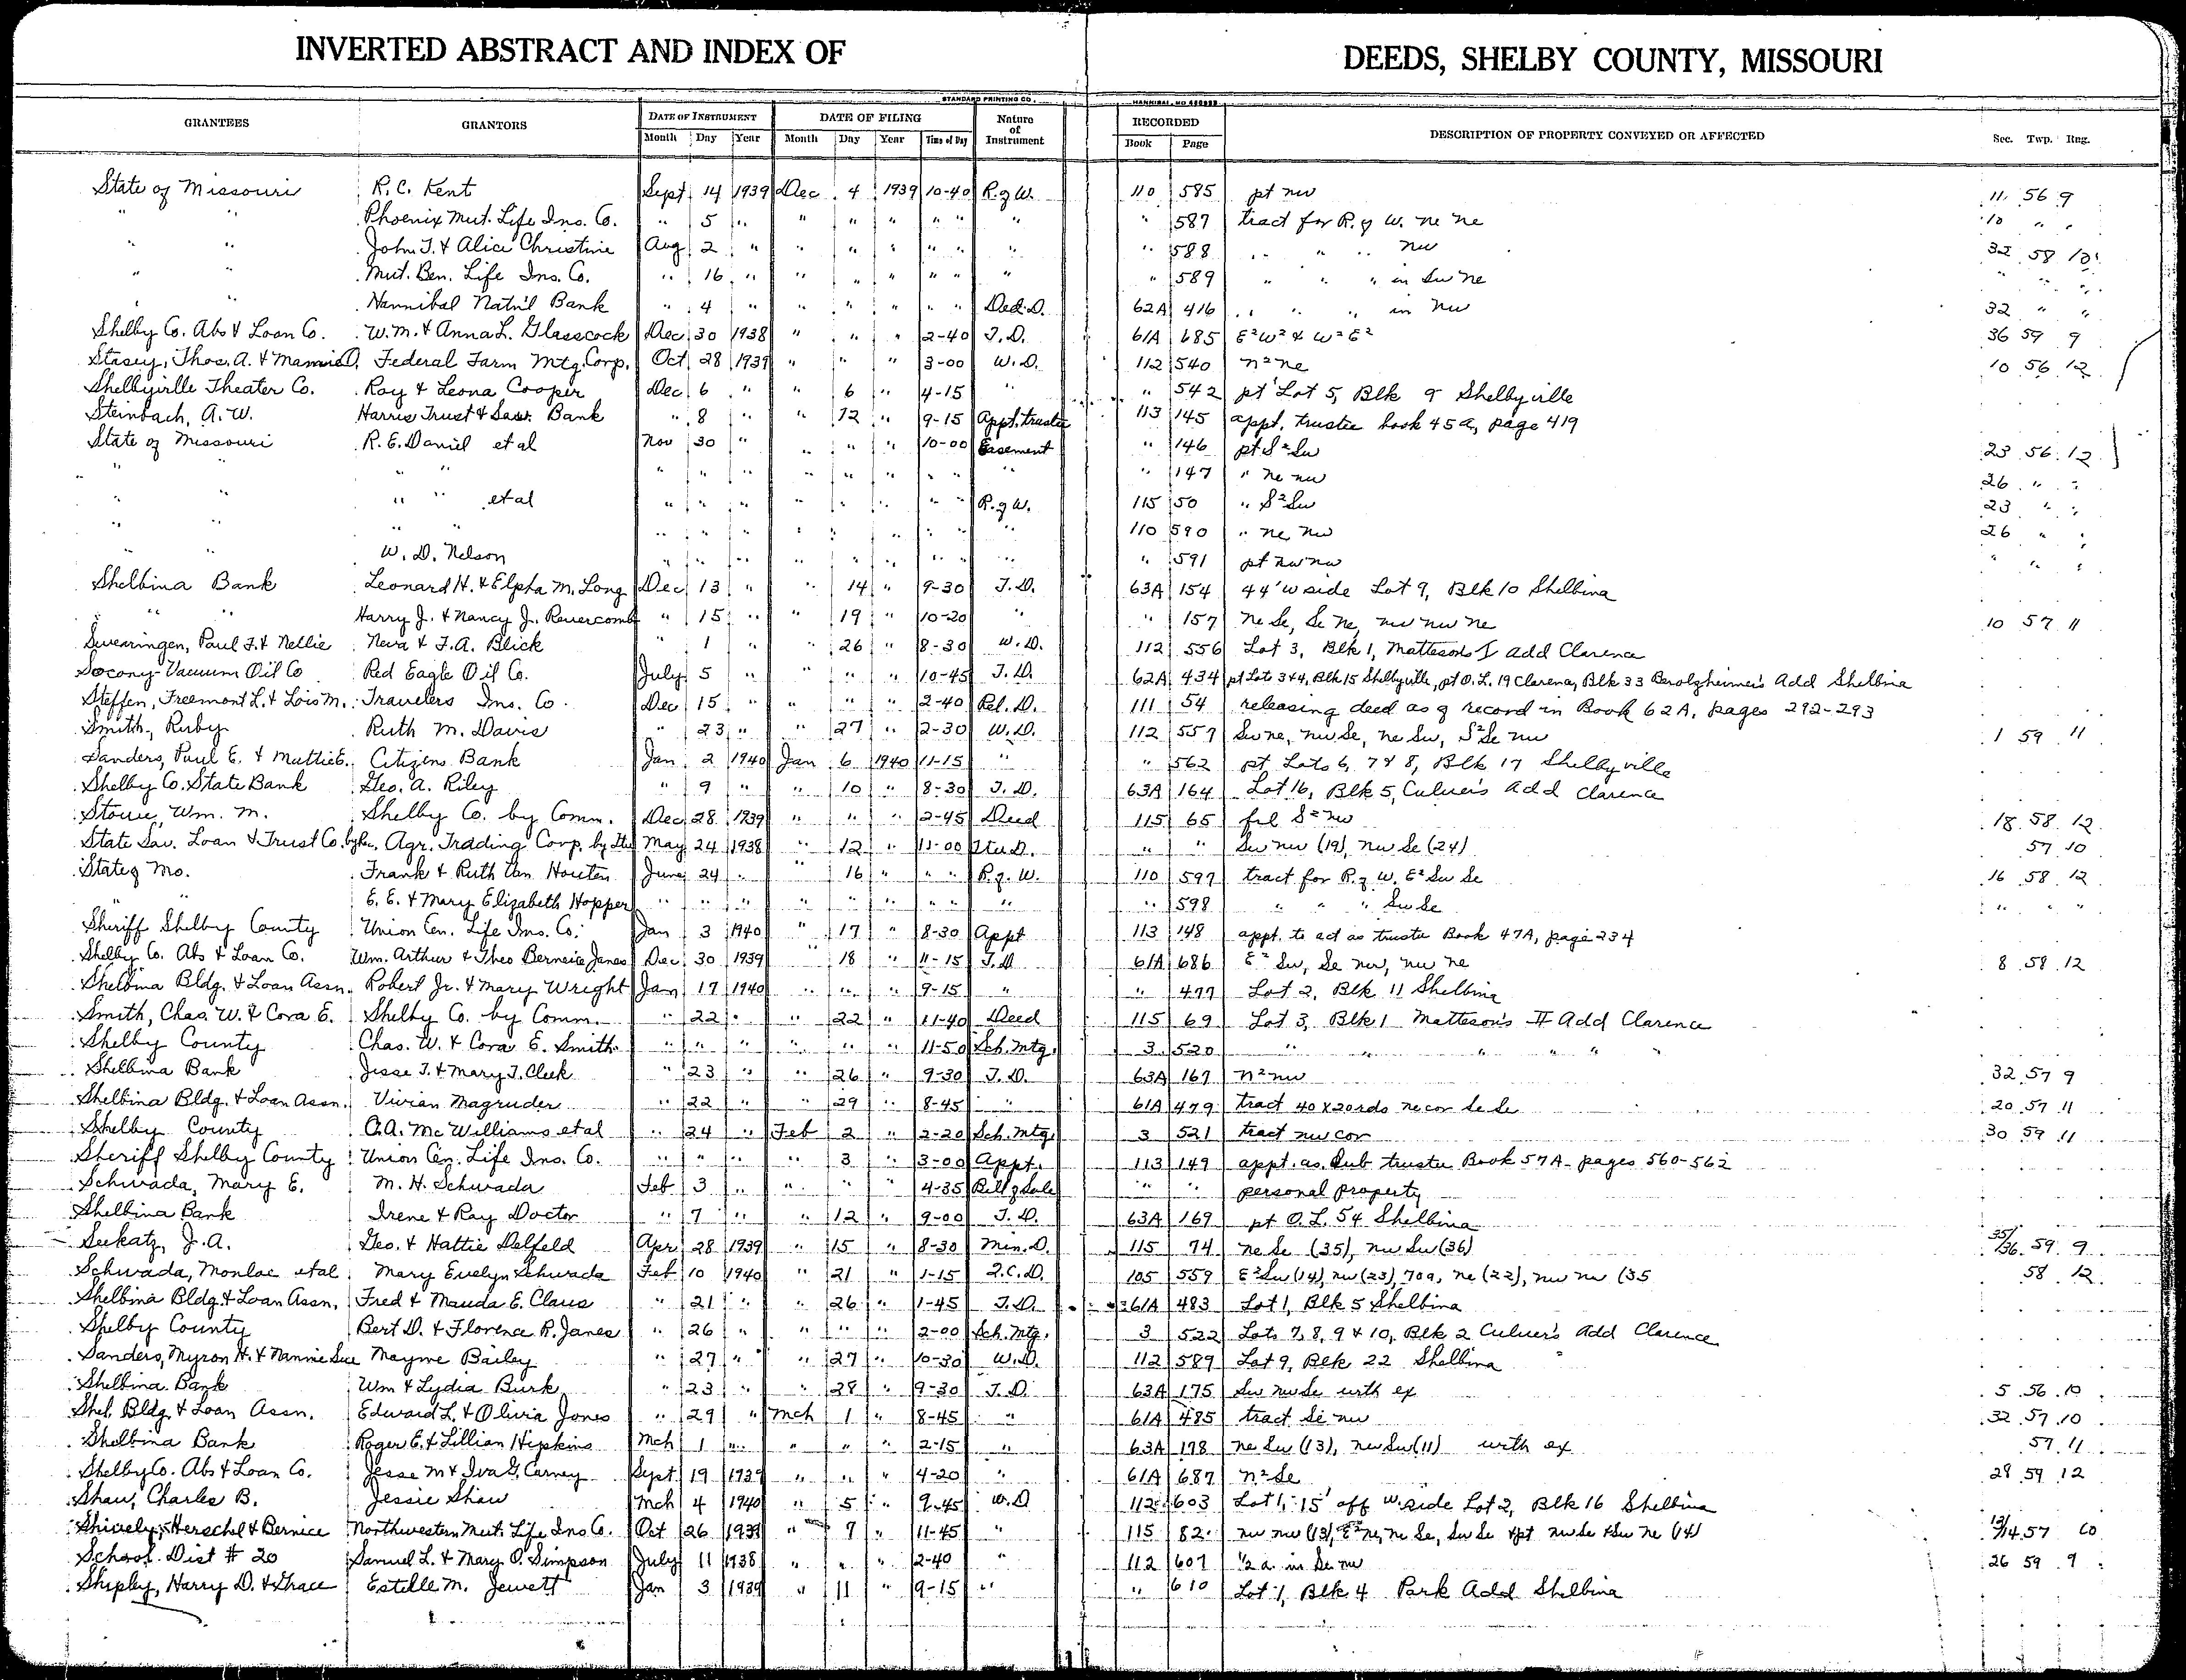 INVERTED ABSTRACT AND INDEX OF DEEDS, SHELBY COUNTY, MISSOURI
STANDARD PRINTING CO. HANNIBAL, MO
GRANTEES GRANTORS DATE OF INSTRUMENT DATE OF FILING Nature of Instrument RECORDED DESCRIPTION OF PROPERTY CONVEYED OR AFFECTED Sec. Twp. Rng.
Month Day Year Month Day Year Time of Day Book Page
State of Missouri R. C. Kent Sept 14 1939 Dec 4 1939 10-40 R. of W. 110 585 pt nw 11 56 9
" " Phoenix Mut. Life Ins. Co. " 5 " " " " " " " " 587 tract for R. of W. ne ne 10 " "
" " John T. & Alice Christine Aug 2 " " " " " " " " 588 " " " nw 32 58 10
" " Mut. Ben. Life Ins. Co. " 16 " " " " " " " " 589 " " " in Sw ne " " "
" " Hannibal Nat'l Bank " 4 " " " " " " Ded. D. 62A 416 " " " in nw 32 " "
Shelby Co. Abs & Loan Co. W. M. & Anna L. Glasscock Dec 30 1938 " " " 2-40 T. D. 61A 685 E²W² & W²E² 36 59 9
Stasey, Thos. A. & Mamie O. Federal Farm Mtg. Corp. Oct 28 1939 " " " 3-00 W. D. 112 540 n²ne 10 56 12
Shelbyville Theater Co. Roy & Leona Cooper Dec 6 " " 6 " 4-15 " " 542 pt Lot 5, Blk 9 Shelbyville
Steinbach, A. W. Harris Trust & Sav. Bank " 8 " " 12 " 9-15 Appt. trustee 113 145 appt. trustee book 45A, page 419
State of Missouri R. E. Daniel et al Nov 30 " " " " 10-00 Easement " 146 pt S²Sw 23 56 12
" " " " " " " " " " " " " " 147 " ne nw 26 " "
" " " " et al " " " " " " " " R. of W. 115 50 " S²Sw 23 " "
" " " " " " " " " " " " " 110 590 " ne nw 26 " "
" " W. D. Nelson " " " " " " " " " " 591 pt nw nw " " "
Shelbina Bank Leonard H. & Elpha M. Long Dec 13 " " 14 " 9-30 T. D. 63A 154 44' W side Lot 9, Blk 10 Shelbina
" " Harry J. & Nancy J. Revercomb " 15 " " 19 " 10-20 " " 157 ne Se, Se ne, nw nw ne 10 57 11
Swearingen, Paul F. & Nellie Neva & F. A. Blick " 1 " 26 " 8-30 W. D. 112 556 Lot 3, Blk 1, Matteson's I Add Clarence
Socony-Vacuum Oil Co Red Eagle Oil Co. July 5 " " " " 10-45 T. D. 62A 434 pt Lots 3 & 4, Blk 15 Shelbyville, pt O. L. 19 Clarence, Blk 33 Berolzheimer's Add Shelbina
Steffen, Freemont L. & Lois M. Travelers Ins. Co. Dec 15 " " " " 2-40 Rel. D. 111 54 releasing deed as of record in Book 62A, pages 292-293
Smith, Ruby Ruth M. Davis " 23 " " 27 " 2-30 W. D. 112 557 Sw ne, nw Se, ne Sw, S²Se nw 1 59 11
Sanders, Paul E. & Mattie E. Citizens Bank Jan 2 1940 Jan 6 1940 11-15 " " 562 pt Lots 6, 7 & 8, Blk 17 Shelbyville
Shelby Co. State Bank Geo. A. Riley " 9 " " 10 " 8-30 T. D. 63A 164 Lot 16, Blk 5, Culver's Add Clarence
Stowe, Wm. M. Shelby Co. by Comm. Dec 28 1939 " " " 2-45 Deed 115 65 frl S²nw 18 58 12
State Sav. Loan & Trust Co. Agr. Trading Corp. May 24 1938 " 12 " 11-00 " " Sw nw (19), nw Se (24) 57 10
State of Mo. Frank & Ruth Van Houten June 24 " " 16 " " " R. of W. 110 597 tract for R. of W. E²Sw Se 16 58 12
" E. E. & Mary Elizabeth Hopper " " " " " " " " " " 598 " " " Sw Se " " "
Sheriff Shelby County Union Cen. Life Ins. Co. Jan 3 1940 " 17 " 8-30 Appt 113 148 appt. to act as trustee Book 47A, page 234
Shelby Co. Abs & Loan Co. Wm. Arthur & Theo Berneice Janes Dec 30 1939 " 18 " 11-15 T. D. 61A 686 E²Sw, Se nw, nw ne 8 58 12
Shelbina Bldg. & Loan Assn. Robert Jr. & Mary Wright Jan 17 1940 " " " 9-15 " " 477 Lot 2, Blk 11 Shelbina
Smith, Chas. W. & Cora E. Shelby Co. by Comm. " 22 " " 22 " 11-40 Deed 115 69 Lot 3, Blk 1 Matteson's II Add Clarence
Shelby County Chas. W. & Cora E. Smith " " " " " " 11-50 Sch. Mtg. 3 520 " " " " "
Shelbina Bank Jesse T. & Mary J. Cleek " 23 " " 26 " 9-30 T. D. 63A 167 n²nw 32 57 9
Shelbina Bldg. & Loan Assn. Vivian Magruder " 22 " " 29 " 8-45 " 61A 479 tract 40 x 20 rds ne cor Se Se 20 57 11
Shelby County O. A. McWilliams et al " 24 " Feb 2 " 2-20 Sch. Mtg. 3 521 tract nw cor 30 59 11
Sheriff Shelby County Union Cen. Life Ins. Co. " " " " 3 " 3-00 Appt. 113 149 appt. as Sub trustee Book 57A pages 560-562
Schwada, Mary E. M. H. Schwada Feb 3 " " " " 4-35 Bill of Sale " " personal property
Shelbina Bank Irene & Ray Doctor " 7 " " 12 " 9-00 T. D. 63A 169 pt O. L. 54 Shelbina
Seekatz, J. A. Geo. & Hattie Delfeld Apr 28 1939 " 15 " 8-30 Min. D. 115 74 ne Se (35), nw Sw (36) 35/36 59 9
Schwada, Monlac et al Mary Evelyn Schwada Feb 10 1940 " 21 " 1-15 Q. C. D. 105 559 E²Sw (14), nw (23), 70a, ne (22), nw nw (35 58 12
Shelbina Bldg. & Loan Assn. Fred & Mauda E. Claus " 21 " " 26 " 1-45 T. D. 61A 483 Lot 1, Blk 5 Shelbina
Shelby County Bert D. & Florence R. Janes " 26 " " " " 2-00 Sch. Mtg. 3 522 Lots 7, 8, 9 & 10, Blk 2 Culver's Add Clarence
Sanders, Myron H. & Nannie Sue Mayme Bailey " 27 " " 27 " 10-30 W. D. 112 589 Lot 9, Blk 22 Shelbina
Shelbina Bank Wm & Lydia Burk " 23 " " 28 " 9-30 T. D. 63A 175 Sw nw Se with ex 5 56 10
Shel. Bldg. & Loan Assn. Edward L. & Olivia Jones " 29 " Mch 1 " 8-45 " 61A 485 tract Se nw 32 57 10
Shelbina Bank Roger E. & Lillian Hipkins Mch 1 " " " " 2-15 " 63A 178 ne Sw (13), nw Sw (11) with ex 57 11
Shelby Co. Abs & Loan Co. Jesse M & Iva G. Carney Sept 19 1939 " " " 4-20 " 61A 687 n²Se 28 59 12
Shaw, Charles B. Jessie Shaw Mch 4 1940 " 5 " 9-45 W. D 112 603 Lot 1, 15' off W. side Lot 2, Blk 16 Shelbina
Shively, Herschel & Bernice Northwestern Mut. Life Ins Co. Oct 26 1939 " 7 " 11-45 " 115 82 nw nw (13), E²ne, ne Se, Sw Se & pt nw Se & Sw ne (14) 13/14 57 10
School Dist # 20 Samuel L. & Mary O. Simpson July 11 1938 " " " 2-40 " 112 607 ½ a. in Se nw 26 59 9
Shipley, Harry D. & Grace Estelle M. Jewett Jan 3 1939 " 11 " 9-15 " " 610 Lot 1, Blk 4 Park Add Shelbina